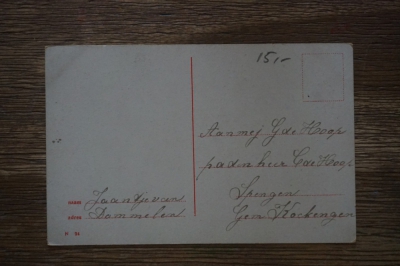 15,-
Aan mej G de Hoop
p/a den heer C de Hoop
Spengen
Gem Kockengen
Jaantje van
Dommelen